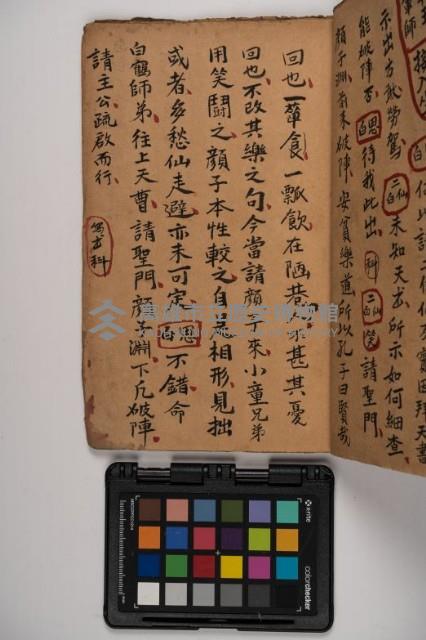 示出方敢勞駕
二仙白
未知天書所示如何細查
能破陣否
白思
待我此出
科
二仙白笑
請聖門
顏子淵前來破陣安貧樂道所以孔子曰賢哉
回也一簞食一瓢飲在陋巷不甚其憂
回也不改其樂之句今當請顏來小童兄弟
用笑鬪之顏子本性較之自是相形見拙
或者多愁仙走避亦未可定
白思
不錯命
白鶴師弟往上天曹請聖門顏子淵下凡破陣
請主公疏啟而行
科
高雄市立歷史博物館
x-rite
colorchecker